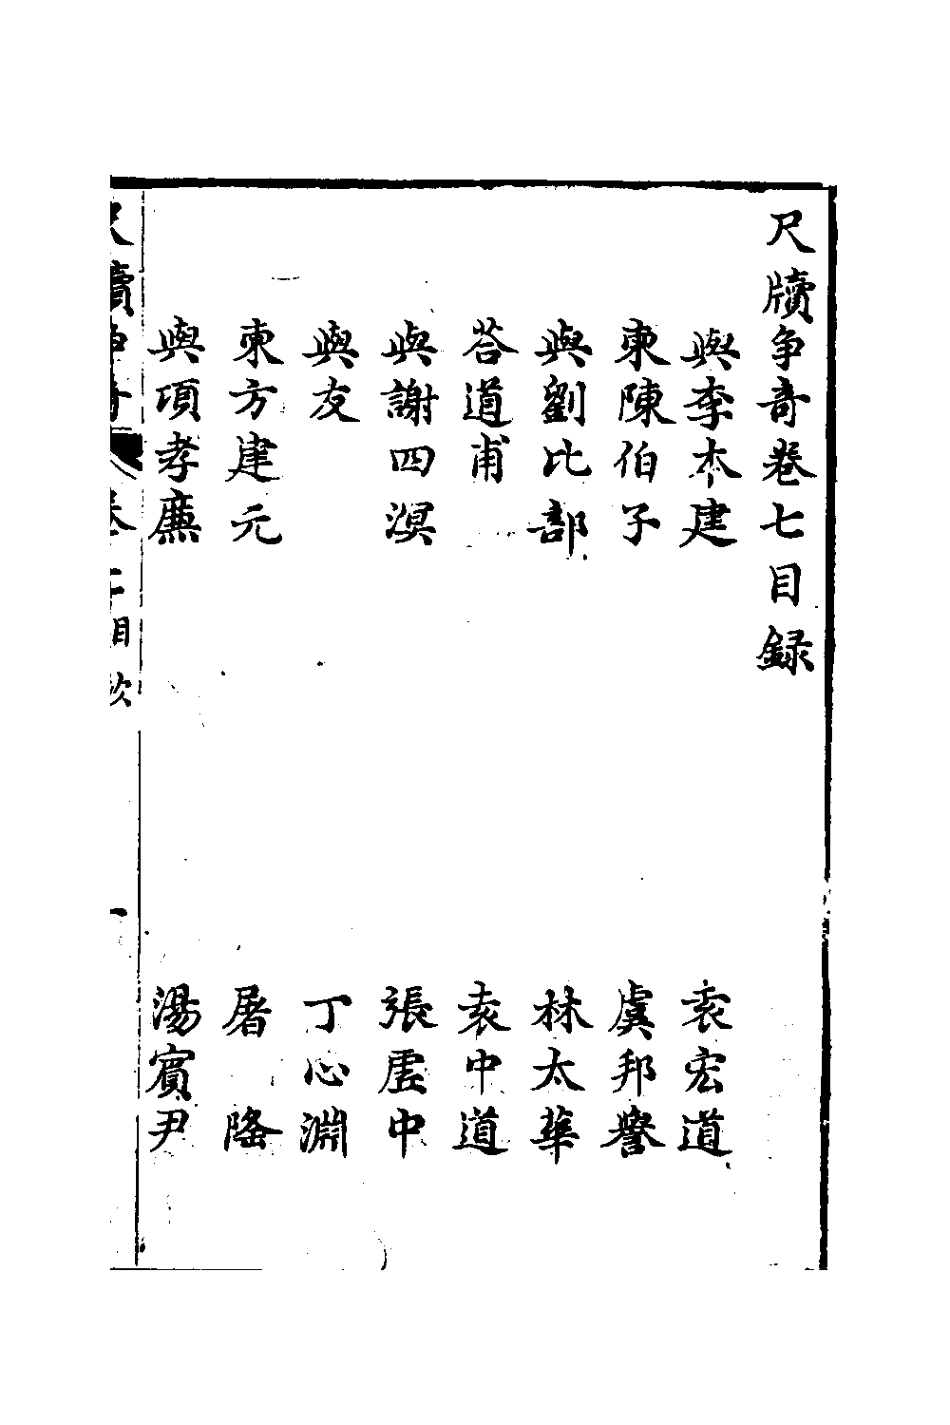 尺牘争奇卷七目録
與李本建 袁宏道
柬陳伯子 虞邦譽
與劉比部 林太華
荅道甫 袁中道
與謝四溟 張虛中
與友 丁心淵
柬方建元 屠隆
與項孝廉 湯賓尹
尺牘争奇 卷七目次 一